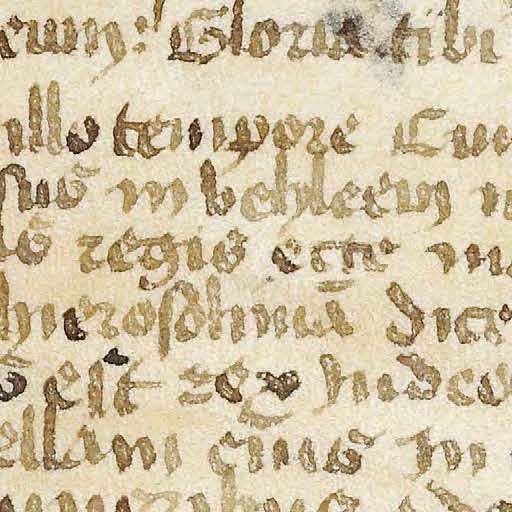 eum: Gloria tibi
illo tempore Cum
sus in bethleem
regis ecce ma
hierosolimā dice
est rex iudeo
ellam eius in